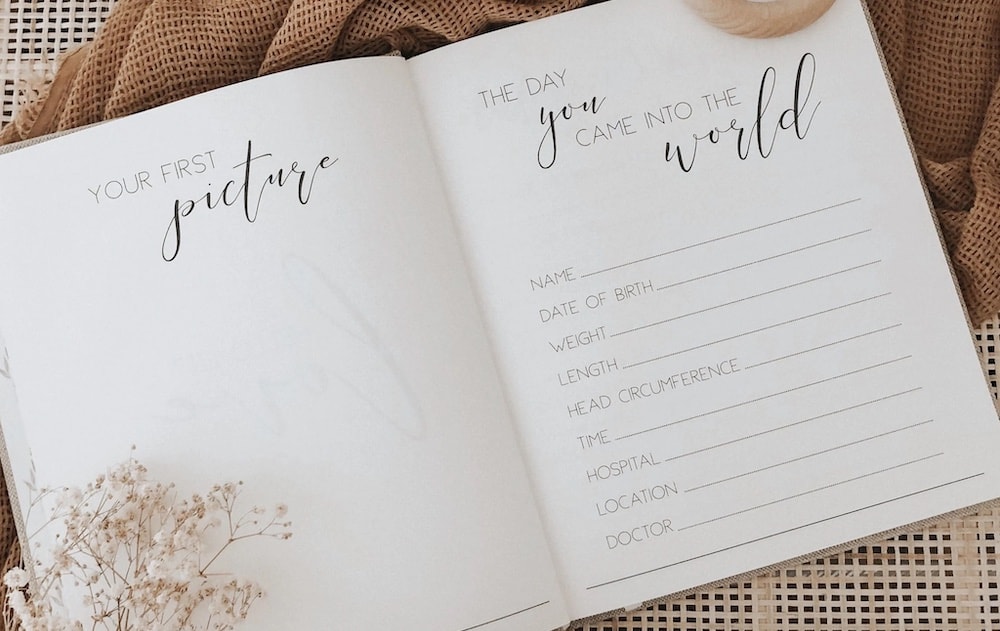 YOUR FIRST
picture
THE DAY
you
CAME INTO THE
world
NAME
DATE OF BIRTH
WEIGHT
LENGTH
HEAD CIRCUMFERENCE
TIME
HOSPITAL
LOCATION
DOCTOR